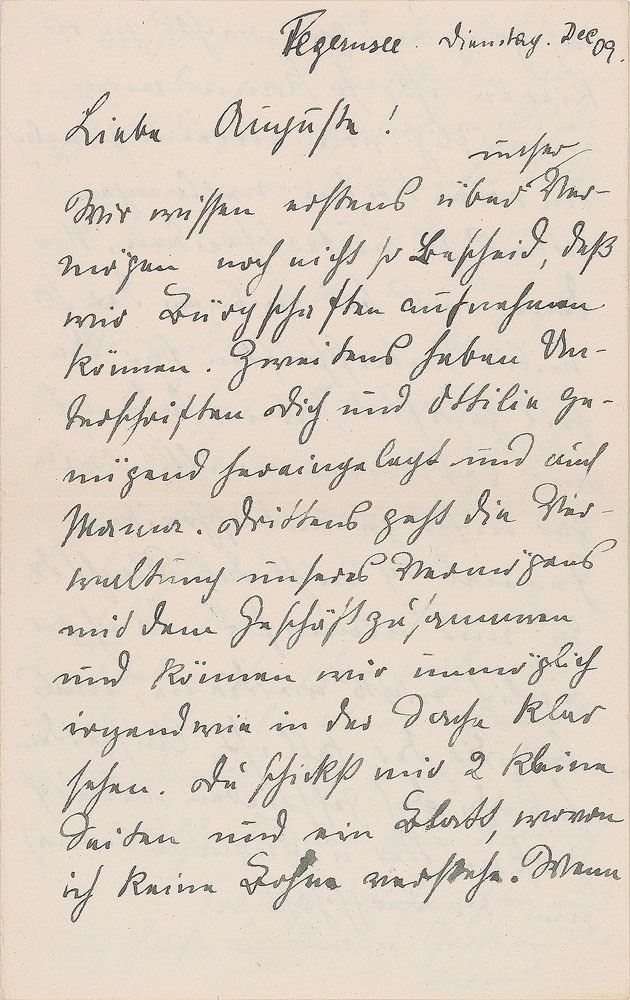 Tegernsee. Dienstag. Dec 09.
Liebe Auguste!
unser
Wir wissen erstens über Ver-
mögen noch nicht so Bescheid, daß
wir Bürgschaften aufnehmen
können. Zweitens haben Un-
terschriften Dich und Ottilie ge-
nügend hereingelegt und auch
Mama. Drittens geht die Ver-
waltung unseres Vermögens
mit dem Geschäft zusammen
und können wir unmöglich
irgendwie in der Sache klar
sehen. Du schickst mir 2 kleine
Seiten und ein Blatt, wovon
ich keine Bohne verstehe. Wenn